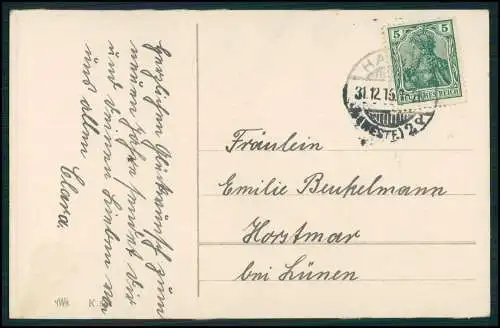 Herzlichen Glückwunsch zum
neuen Jahre sendet Dir
und Deinen Lieben von
uns allen Clara.
5 5
DEUTSCHES REICH
HA
31.12.15
(WESTF.)
Fräulein
Emilie Beukelmann
Horstmar
bei Lünen